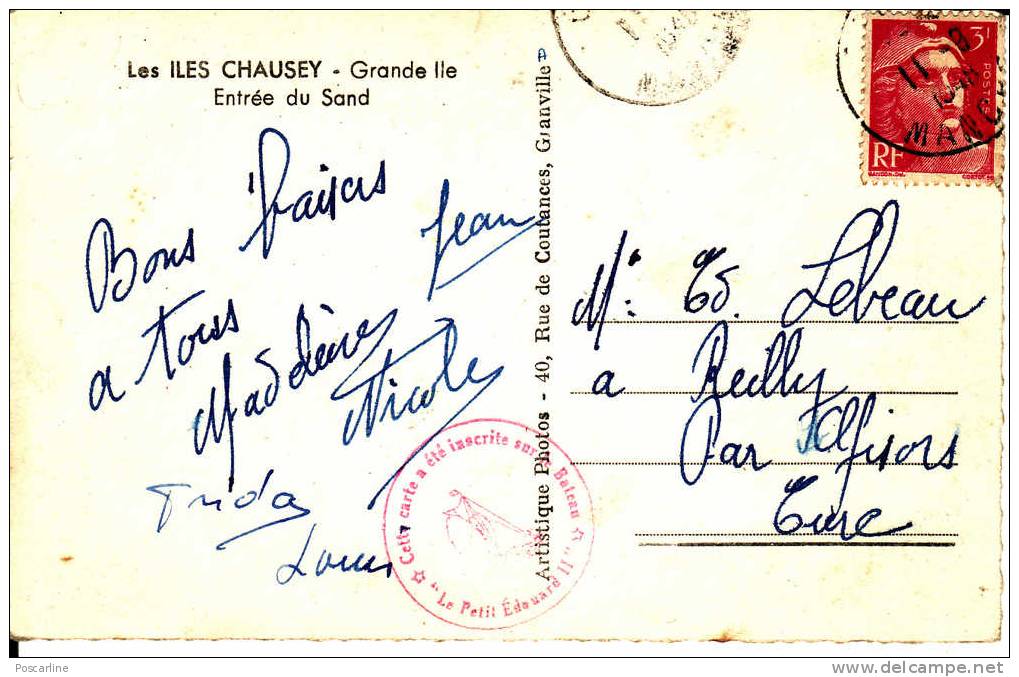 Les ILES CHAUSEY - Grande Ile
Entrée du Sand
Bons baisers
a tous
Jean
Madeleine
Nicole
Frida
Louis
Artistique Photos - 40, Rue de Coutances, Granville
Cette carte a été inscrite sur le Bateau
"Le Petit Édouard II"
3F
POSTES
RF
11-8
1948
MANCHE
Mr Ed. Lebeau
a Reilly
Par Gisors
Eure
Poscarline
delcampe.net